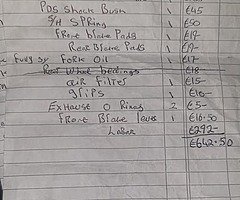 PDS Shock Bush 1 £45
S/H SPring 1 £50
Front Brake Pads 1 £19-
Rear Brake Pads 1 £19-
Fork Oil £17-
Rear Wheel bearings 1 £18-
air filter 1 £15-
grips 1 £10-
Exhaust O Rings 2 £5-
Front Brake lever 1 £16.50
Labor £292-
£642.50